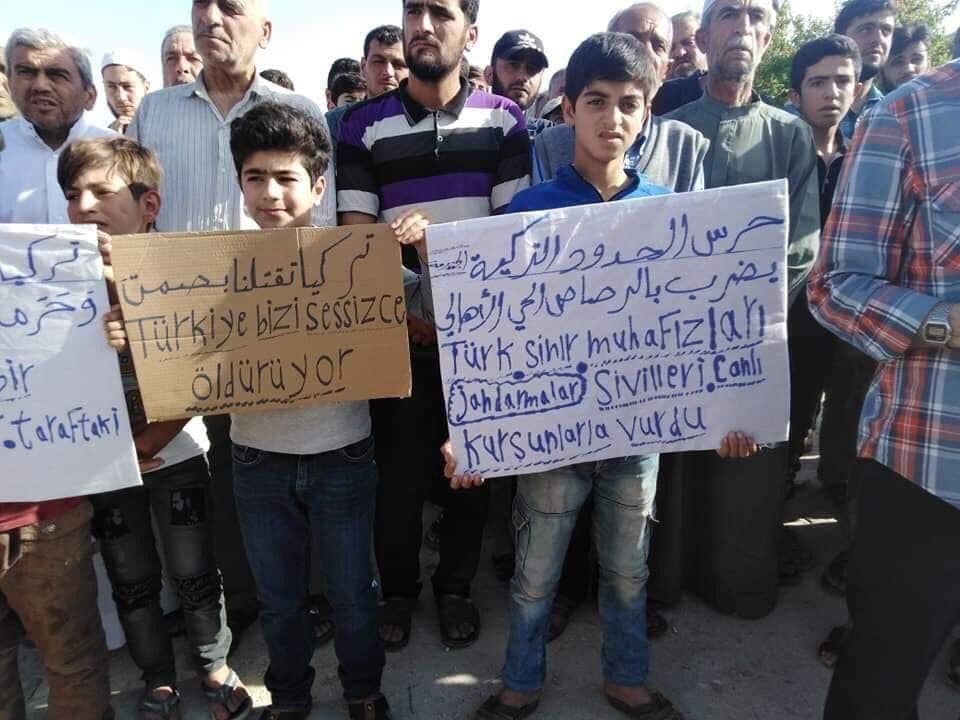 تركيا
bir
taraftaki
تركيا تقتلنا بصمت
Türkiye bizi sessizce
öldürüyor
حرس الحدود التركية
(الجندرمة) يضرب بالرصاص الحي الأهالي
Türk sınır muhafızları
(Jandarmalar) Sivilleri Canlı
Kurşunlarla vurdu